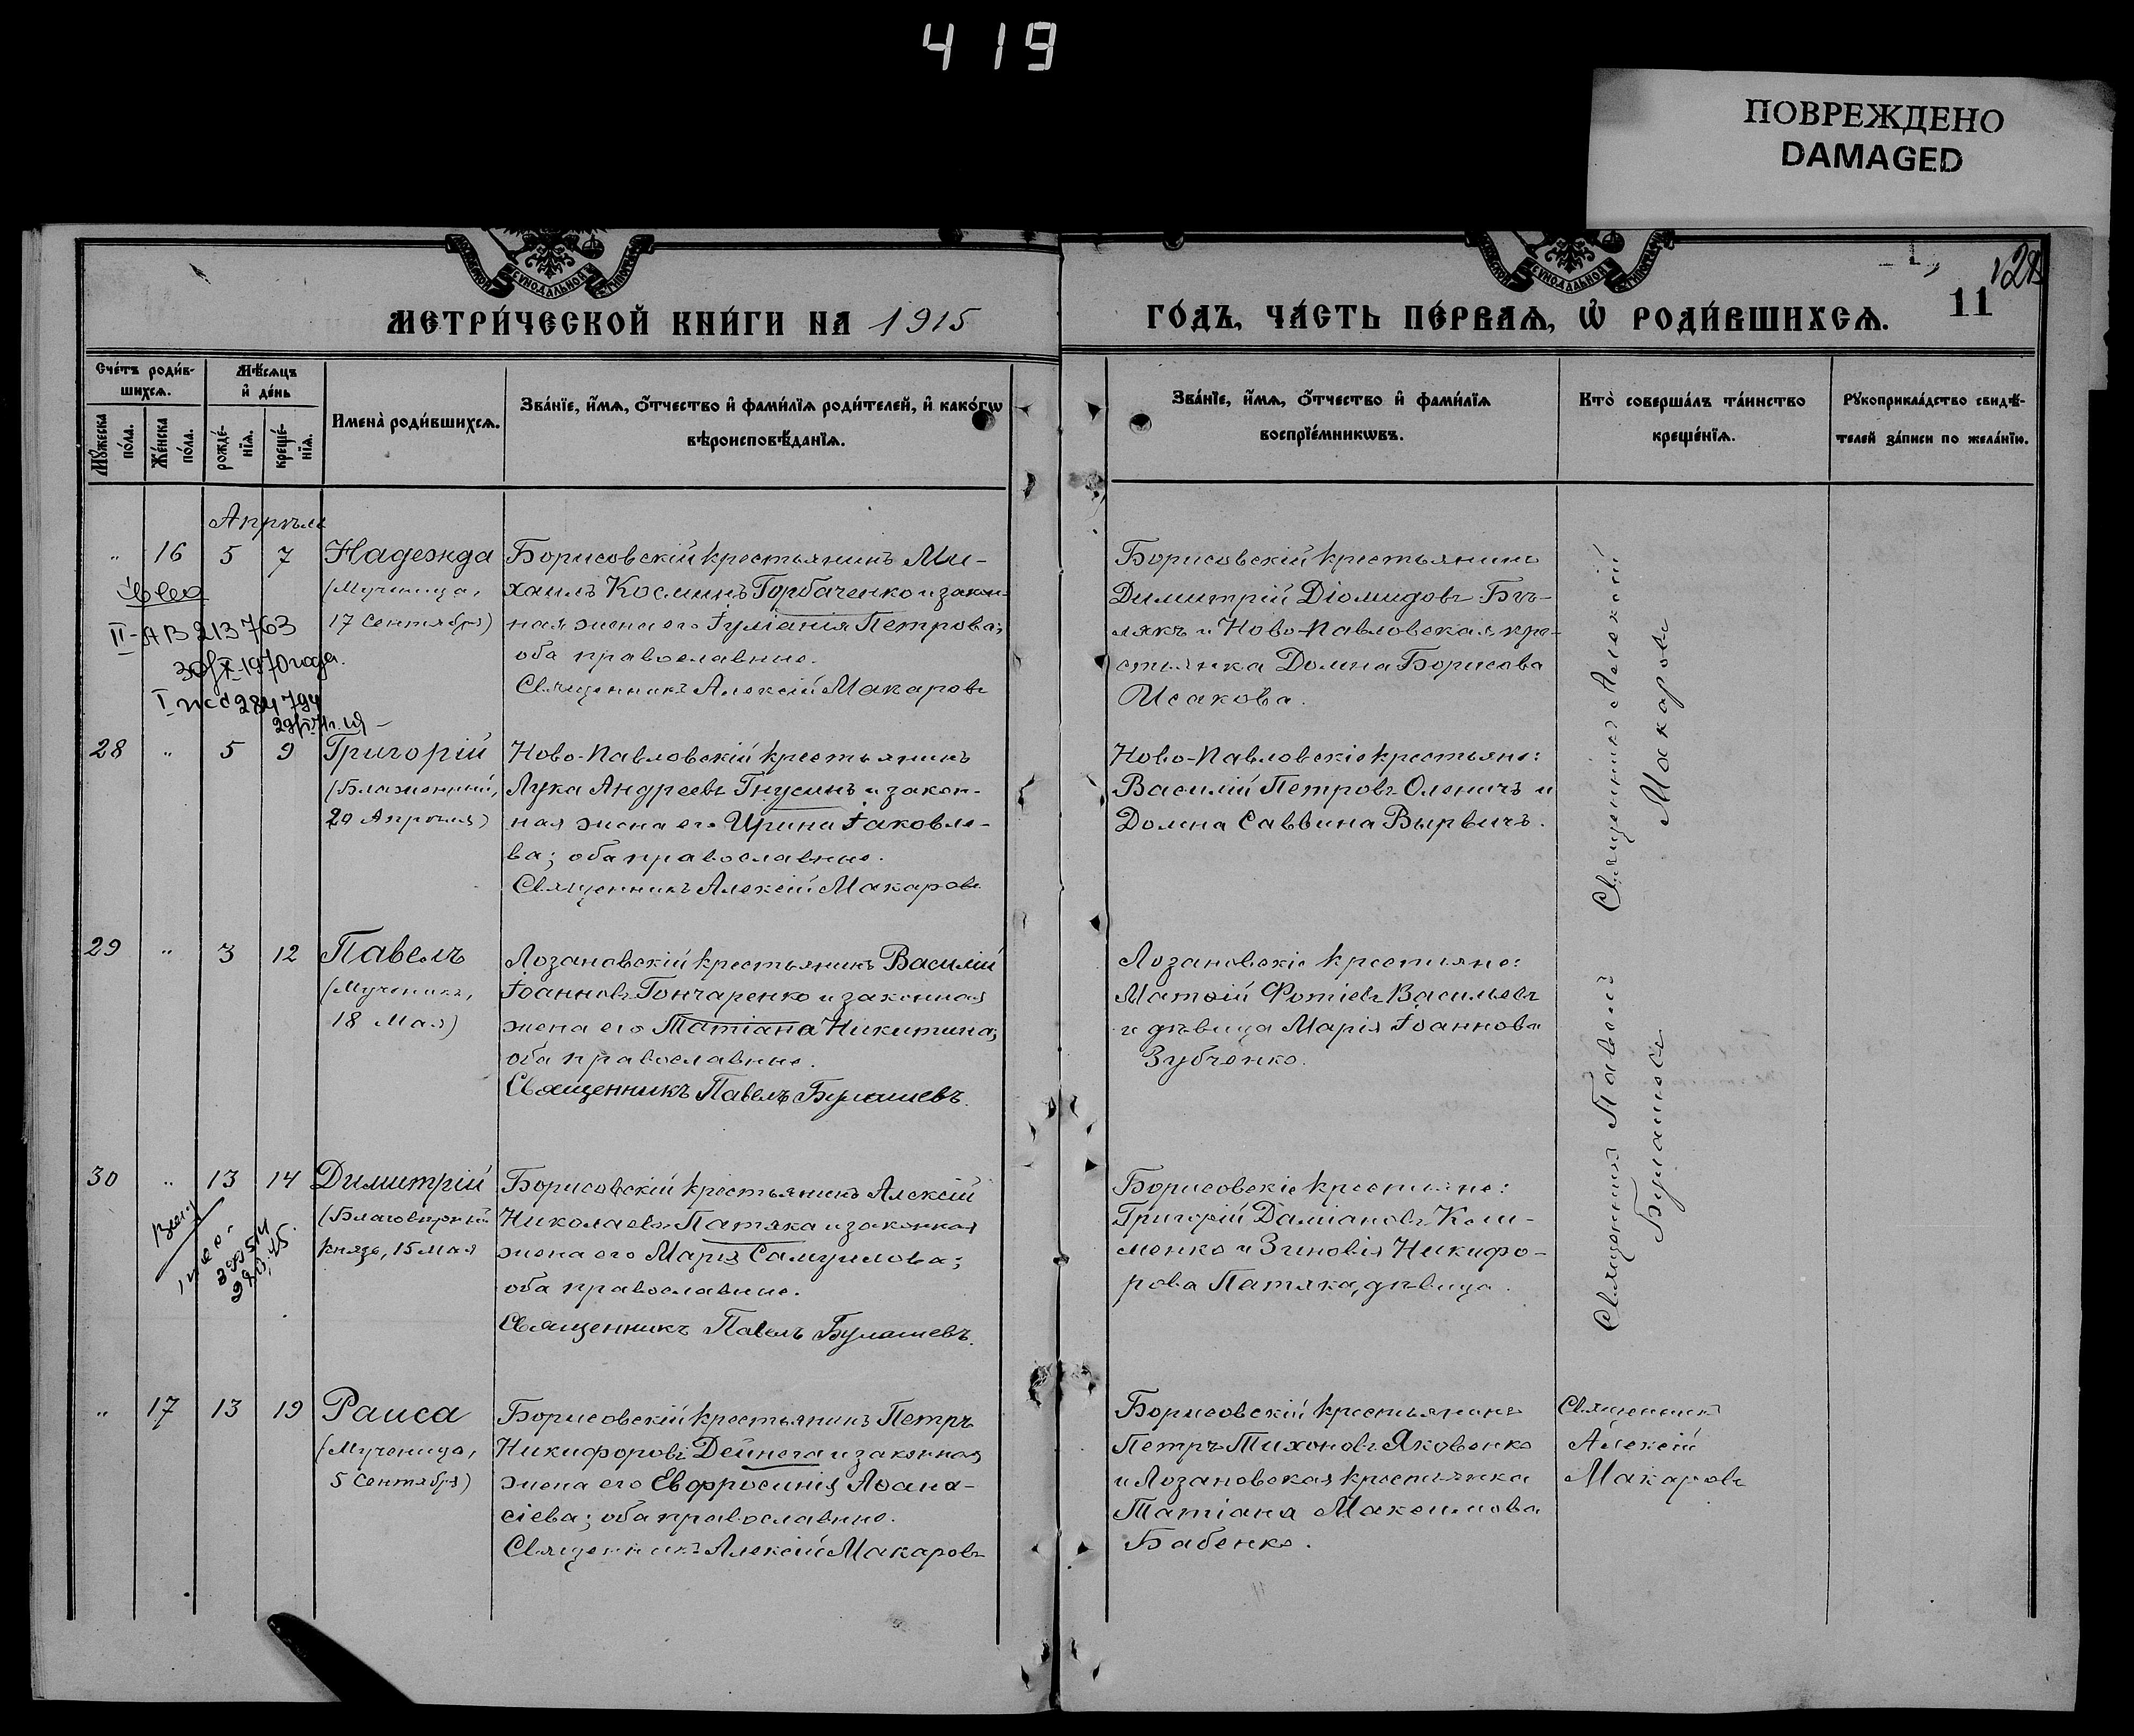 419
ПОВРЕЖДЕНО
DAMAGED
МЕТРИ́ЧЕСКОЙ КНИ́ГИ НА 1915
ГО́ДЪ, ЧА́СТЬ ПЕ́РВАѦ, Ѽ РОДИ́ВШИХСѦ.
11
128
Сче́тъ роди́в-
шихсѧ.
Мѣ́сѧцъ
и҆ де́нь
Мꙋ́жеска
по́ла.
Же́нска
по́ла.
рожде́-
нїѧ.
креще́-
нїѧ.
Имена̀ роди́вшихсѧ.
Зва́нїе, и҆́мѧ, о҆́тчество и҆ фами́лїѧ роди́телей, и҆ како́гѡ
вѣроисповѣ́данїѧ.
Зва́нїе, и҆́мѧ, о҆́тчество и҆ фами́лїѧ
воспрїе́мникѡвъ.
Кто̀ соверша́лъ та́инство
креще́нїѧ.
Рꙋкоприкла́дство свидѣ́-
телей за́писи по жела́нїю.
Апрѣль
" 16 5 7 Надежда
(Мученица,
17 Сентября)
II-АВ 213763
30/X-1970 года.
284794
Борисовскій крестьянинъ Ми-
хаилъ Косминъ Горбаченко и закон-
ная жена его Іуліанія Петрова;
оба православные.
Священникъ Алексій Макаровъ
Борисовскій крестьянинъ
Димитрій Діомидовъ Бѣ-
лякъ и Ново-Павловская кре-
стьянка Домна Борисова
Исакова.
Священникъ Алексій
Макаровъ
28 " 5 9 Григорій
(Блаженный,
20 Апрѣля)
Ново-Павловскій крестьянинъ
Лука Андреевъ Гнусинъ и закон-
ная жена его Ирина Іаковле-
ва; оба православные.
Священникъ Алексій Макаровъ
Ново-Павловскіе крестьяне:
Василій Петровъ Оленичъ и
Домна Саввина Вырвичъ.
29 " 3 12 Павелъ
(Мученикъ,
18 Мая)
Лозановскій крестьянинъ Василій
Іоанновъ Гончаренко и законная
жена его Татіана Никитина;
оба православные.
Священникъ Павелъ Булашевъ.
Лозановскіе крестьяне:
Матѳій Фотіевъ Васильевъ
и дѣвица Марія Іоаннова
Зубченко.
Священникъ Павелъ
Булашевъ
30 " 13 14 Димитрій
(Благовѣрный
Князь, 15 Мая
Борисовскій крестьянинъ Алексій
Николаевъ Патяка и законная
жена его Марія Самуилова;
оба православные.
Священникъ Павелъ Булашевъ.
Борисовскіе крестьяне:
Григорій Даміановъ Кош-
менко и Зиновія Никифо-
рова Патяка, дѣвица.
" 17 13 19 Раиса
(Мученица,
5 Сентября)
Борисовскій крестьянинъ Петръ
Никифоровъ Дейнега и законная
жена его Евфросинія Аѳана-
сіева; оба православные.
Священникъ Алексій Макаровъ
Борисовскій крестьянинъ
Петръ Тихоновъ Яковенко
и Лозановская крестьянка
Татіана Максимова
Бабенко.
Священникъ
Алексій
Макаровъ